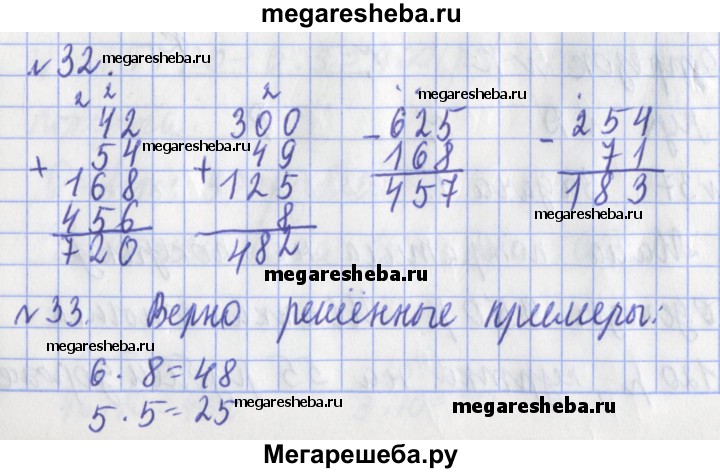 megaresheba.ru
№32.
megaresheba.ru
2 2 2
42 300 - 625 - 254
54 49 168 71
megaresheba.ru
megaresheba.ru
megaresheba.ru
+ 168 + 125 457 183
456 8
720 482
megaresheba.ru
megaresheba.ru
№33. Верно решённые примеры:
megaresheba.ru
6 · 8 = 48
5 · 5 = 25
megaresheba.ru
megaresheba.ru
Мегарешеба.ру